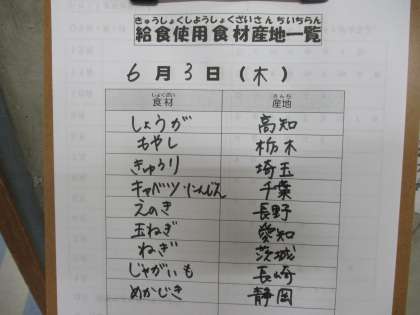 きゅうしょくしようしょくざいさんちいちらん
給食使用食材産地一覧
6月3日(木)
しょくざい さんち
食材 産地
しょうが 高知
もやし 栃木
きゅうり 埼玉
キャベツ・にんじん 千葉
えのき 長野
玉ねぎ 愛知
ねぎ 茨城
じゃがいも 長崎
めかじき 静岡